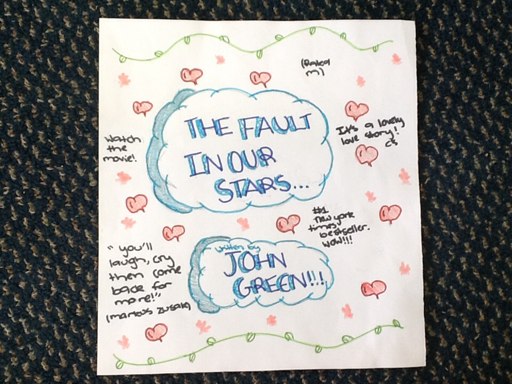 (Rated
m)
THE FAULT
IN OUR
STARS...
Watch
the
movie!
It's a lovely
love story!
#1
new york
times
bestseller.
wow!!!
"you'll
laugh, cry
then come
back for
more!"
(marcus zusak)
written by
JOHN
GREEN!!!